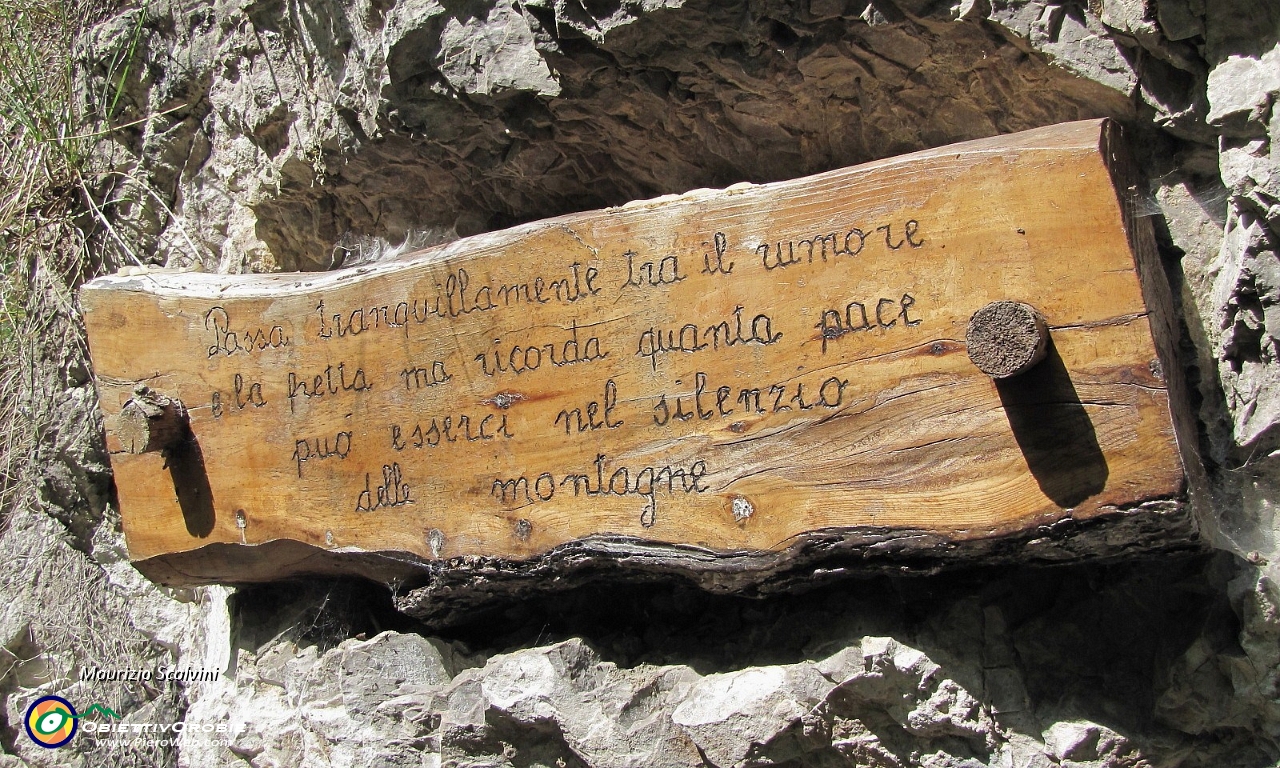 Passa tranquillamente tra il rumore
e la fretta ma ricorda quanta pace
può esserci nel silenzio
delle montagne
Maurizio Scalvini
ObiettivOrobie
www.PieroWeb.com